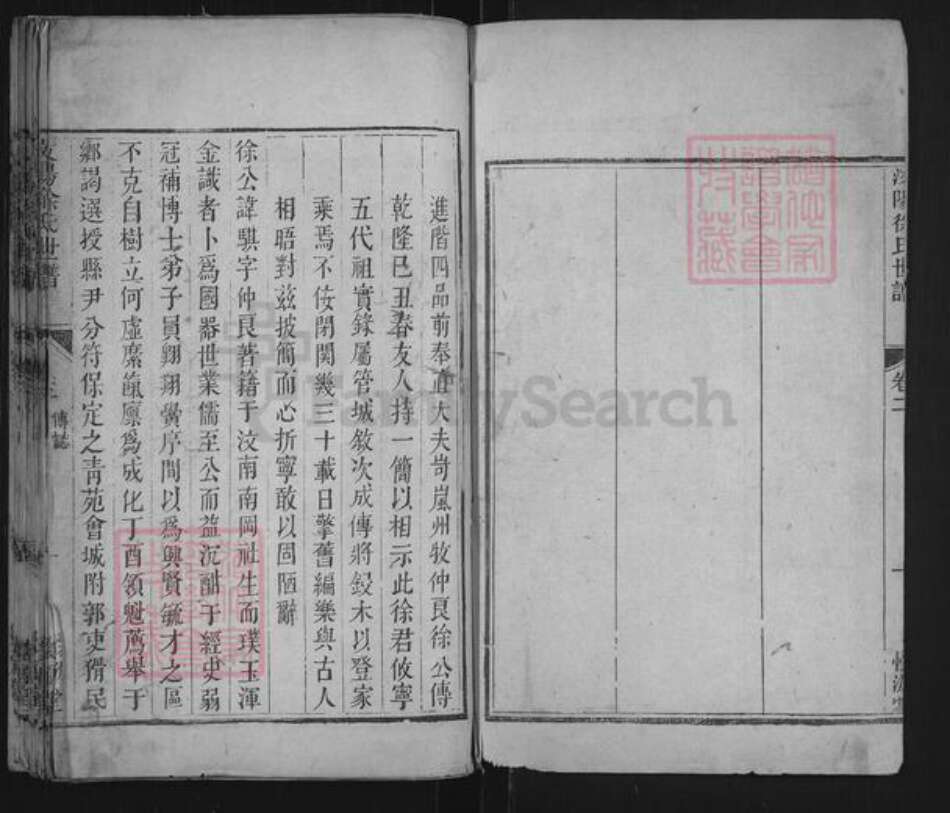 汶陽徐氏世譜
卷二
進階四品前奉直大夫岢嵐州牧仲良徐公傳
乾隆已丑春友人持一簡以相示此徐君攸寧
五代祖實錄屬管城敘次成傳將鋟木以登家
乘焉不佞閉関幾三十載日擎舊編樂與古人
相晤對玆披簡而心折寧敢以固陋辭
徐公諱騏字仲良著籍于汶南南岡社生而璞玉渾
金識者卜爲國器世業儒至公而益沉酣于經史弱
冠補博士弟子員翔翔黌序間以爲興賢毓才之區
不克自樹立何虛縻餼廩爲成化丁酉領魁薦舉于
鄉謁選授縣尹分符保定之靑苑會城附郭吏猾民
汶陽徐氏世譜
傳誌
FamilySearch